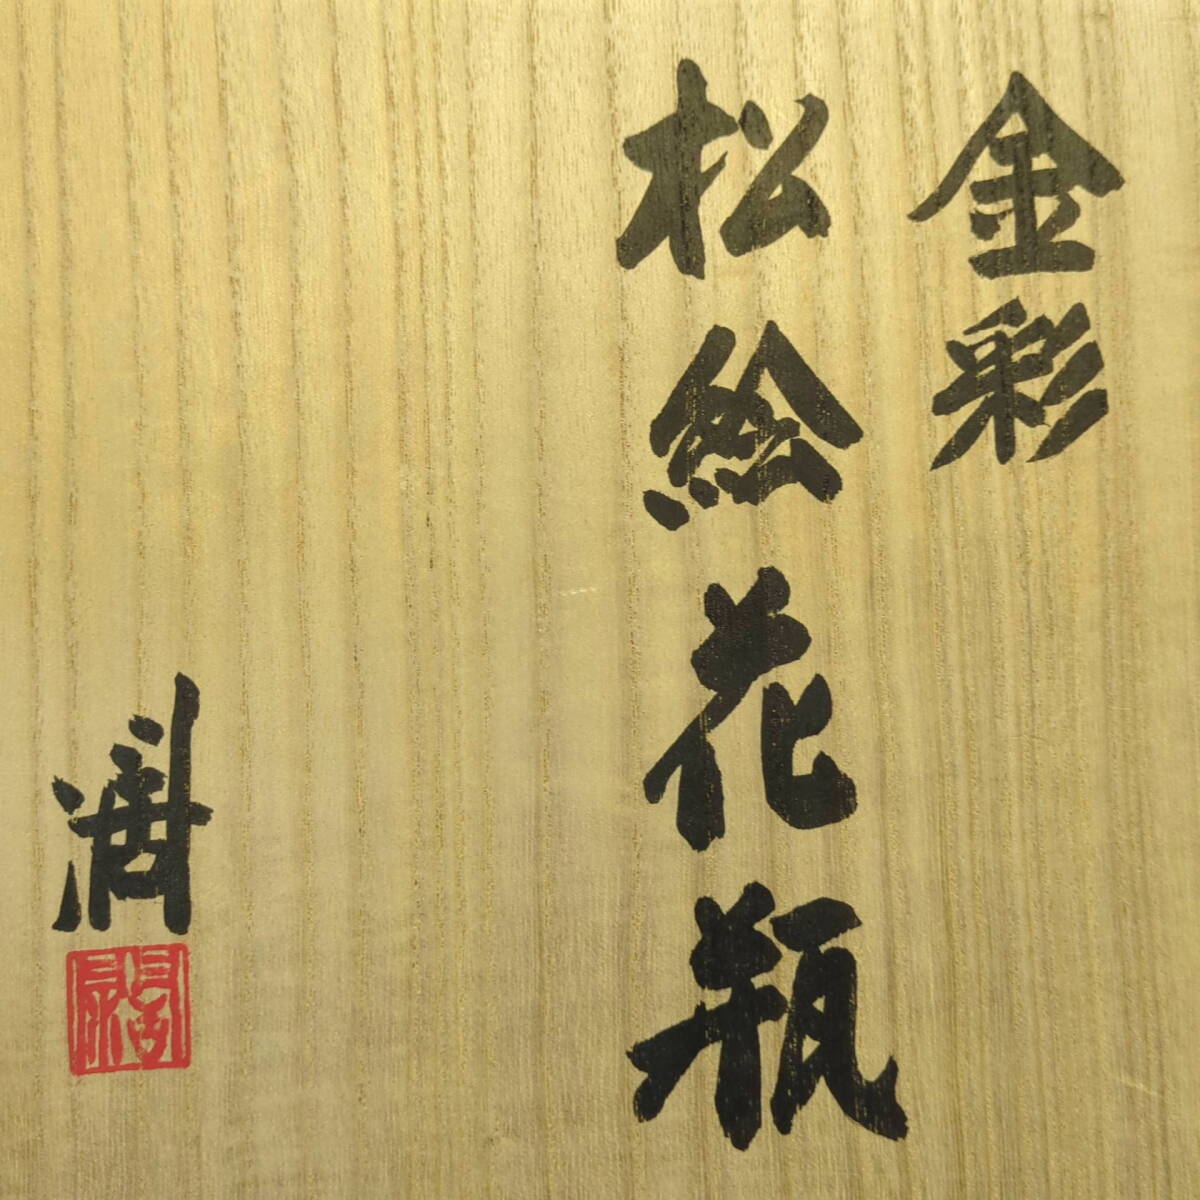 金彩
松絵花瓶